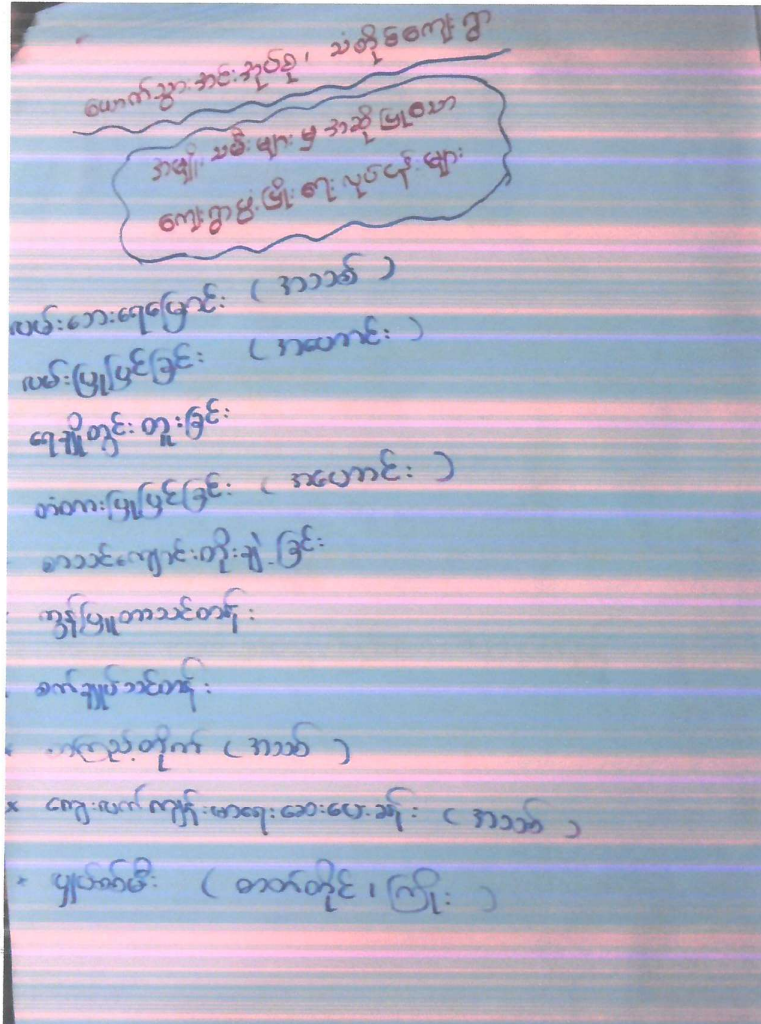 ယောက်သွားအင်းအုပ်စု၊ သံတိုင်ကျေးရွာ
အမျိုးသမီးများမှ အဆိုပြုသော
ကျေးရွာဖွံ့ဖြိုးရေးလုပ်ငန်းများ
လမ်းဘေးရေမြောင်း (အသစ်)
လမ်းပြုပြင်ခြင်း (အဟောင်း)
ရေချိုတွင်းတူးခြင်း
တံတားပြုပြင်ခြင်း (အဟောင်း)
စာသင်ကျောင်းတိုးချဲ့ခြင်း
ကွန်ပြူတာသင်တန်း
စက်ချုပ်သင်တန်း
စာကြည့်တိုက် (အသစ်)
× ကျေးလက်ကျန်းမာရေးဆေးပေးခန်း (အသစ်)
လျှပ်စစ်မီး (ဓာတ်တိုင်၊ ကြိုး)